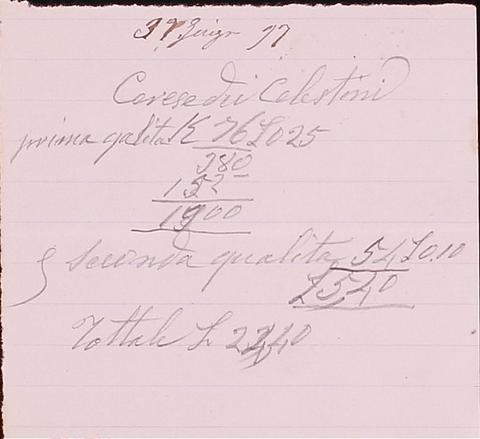 Giugn 97
Cerese di Celestini
prima qalita K 76 L 0 25
380
152
1900
e seconda qualita 54 L 0.10
5,40
Tottale L 24,40